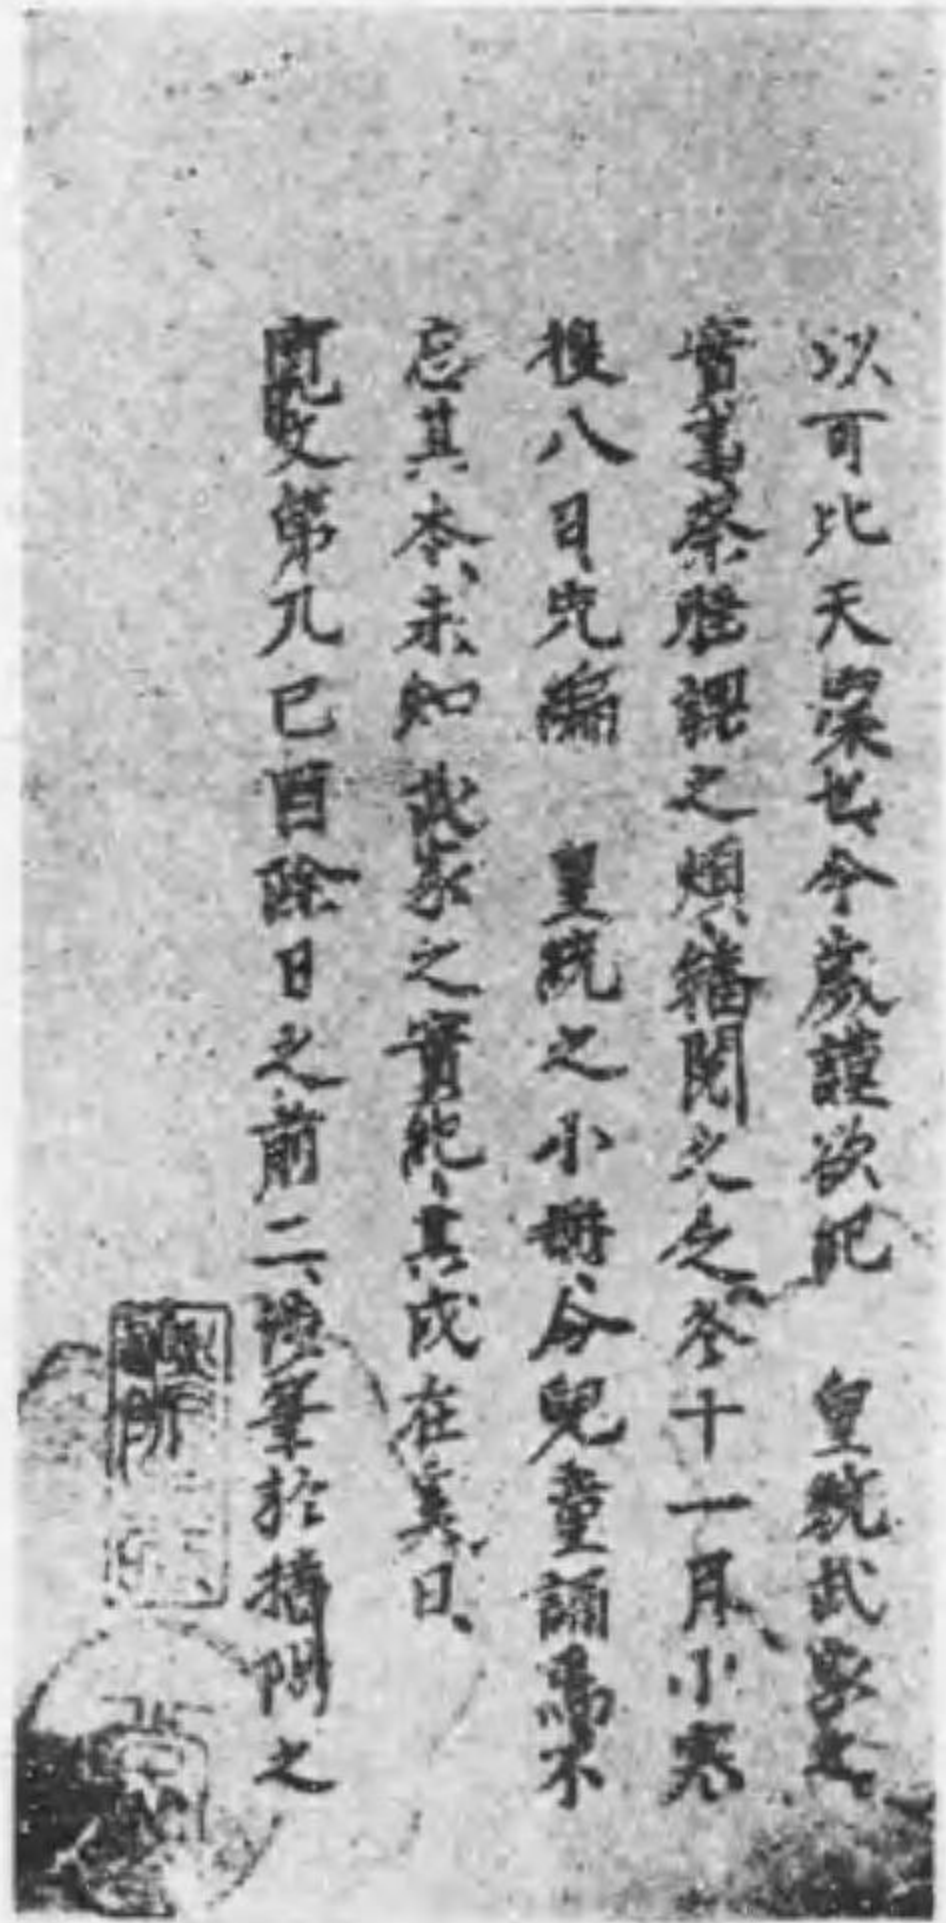 以可比天壤也今歳謹欲記 皇統武家之
實事蔡䏶課之煩繙閲之冬十一月小寒
後八日先編 皇統之小冊令兒童誦焉不
忘其本未知武家之實紀其成在異日
寛文第九己酉除日之前二 筆於播陽之